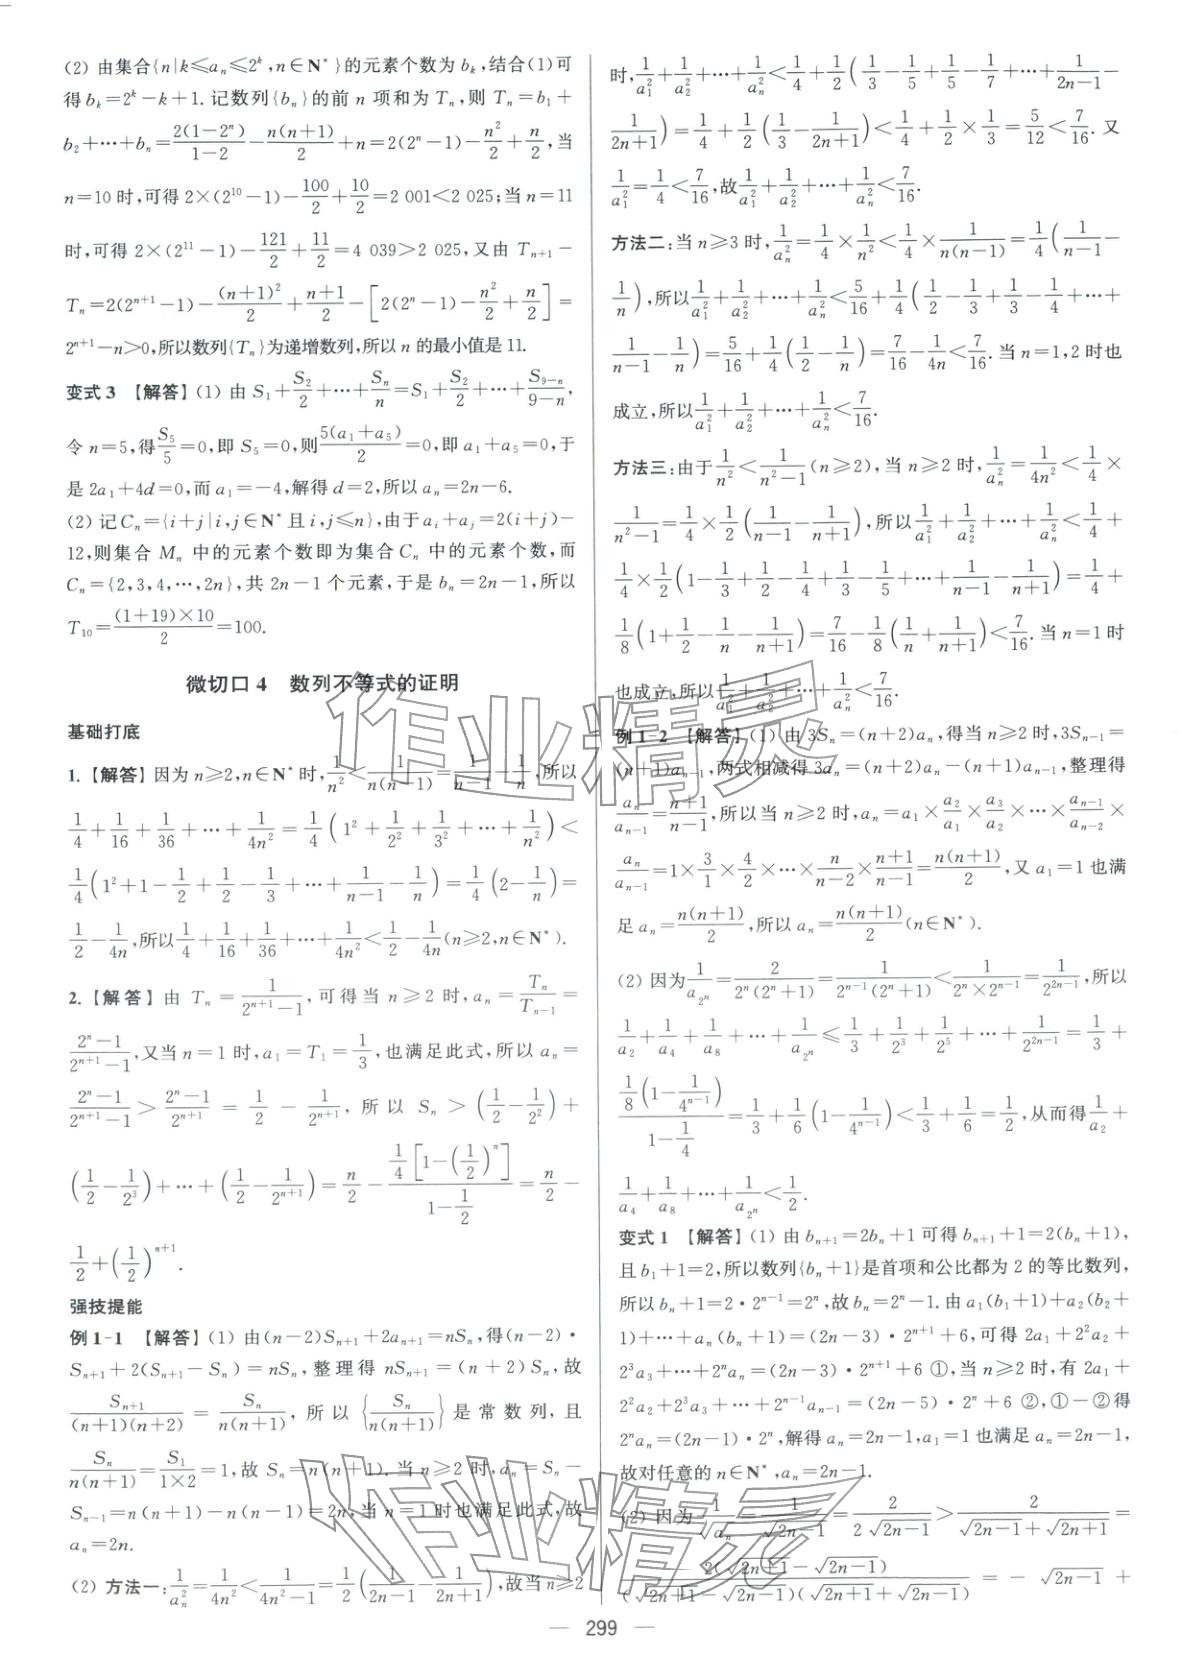 (2) 由集合{n|k≤aₙ≤2ᵏ,n∈N*}的元素个数为 bₖ,结合(1)可
得 bₖ=2ᵏ-k+1. 记数列{bₙ}的前 n 项和为 Tₙ,则 Tₙ=b₁+
b₂+⋯+bₙ=2(1-2ⁿ)/(1-2)-n(n+1)/2+n=2(2ⁿ-1)-n²/2+n/2,当
n=10 时,可得 2×(2¹⁰-1)-100/2+10/2=2 001<2 025;当 n=11
时,可得 2×(2¹¹-1)-121/2+11/2=4 039>2 025,又由 Tₙ₊₁-
Tₙ=2(2ⁿ⁺¹-1)-(n+1)²/2+(n+1)/2-[2(2ⁿ-1)-n²/2+n/2]=
2ⁿ⁺¹-n>0,所以数列{Tₙ}为递增数列,所以 n 的最小值是 11.
变式 3 【解答】(1) 由 S₁+S₂/2+⋯+Sₙ/n=S₁+S₂/2+⋯+S₉₋ₙ/(9-n),
令 n=5,得S₅/5=0,即 S₅=0,则5(a₁+a₅)/2=0,即 a₁+a₅=0,于
是 2a₁+4d=0,而 a₁=-4,解得 d=2,所以 aₙ=2n-6.
(2) 记Cₙ={i+j|i,j∈N*且 i,j≤n},由于 aᵢ+aⱼ=2(i+j)-
12,则集合 Mₙ 中的元素个数即为集合 Cₙ 中的元素个数,而
Cₙ={2,3,4,⋯,2n},共 2n-1 个元素,于是 bₙ=2n-1,所以
T₁₀=(1+19)×10/2=100.
微切口 4 数列不等式的证明
基础打底
1.【解答】因为 n≥2,n∈N*时,1/n²<1/(n(n-1))=1/(n-1)-1/n,所以
1/4+1/16+1/36+⋯+1/4n²=1/4(1²+1/2²+1/3²+⋯+1/n²)<
1/4(1²+1-1/2+1/2-1/3+⋯+1/(n-1)-1/n)=1/4(2-1/n)=
1/2-1/4n,所以1/4+1/16+1/36+⋯+1/4n²<1/2-1/4n(n≥2,n∈N*).
2.【解答】由 Tₙ=1/(2ⁿ⁺¹-1),可得当 n≥2 时,aₙ=Tₙ/Tₙ₋₁=
(2ⁿ-1)/(2ⁿ⁺¹-1),又当 n=1 时,a₁=T₁=1/3,也满足此式,所以 aₙ=
(2ⁿ-1)/(2ⁿ⁺¹-1)>(2ⁿ-1)/2ⁿ⁺¹=1/2-1/2ⁿ⁺¹,所以 Sₙ>(1/2-1/2²)+
(1/2-1/2³)+⋯+(1/2-1/2ⁿ⁺¹)=n/2-(1/4[1-(1/2)ⁿ])/(1-1/2)=n/2-
1/2+(1/2)ⁿ⁺¹.
强技提能
例 1-1 【解答】(1) 由(n-2)Sₙ₊₁+2aₙ₊₁=nSₙ,得(n-2)·
Sₙ₊₁+2(Sₙ₊₁-Sₙ)=nSₙ,整理得 nSₙ₊₁=(n+2)Sₙ,故
Sₙ₊₁/((n+1)(n+2))=Sₙ/(n(n+1)),所以{Sₙ/(n(n+1))}是常数列,且
Sₙ/(n(n+1))=S₁/(1×2)=1,故 Sₙ=n(n+1). 当 n≥2 时,aₙ=Sₙ-
Sₙ₋₁=n(n+1)-n(n-1)=2n,当 n=1 时也满足此式,故
aₙ=2n.
(2) 方法一:1/aₙ²=1/4n²<1/(4n²-1)=1/2(1/(2n-1)-1/(2n+1)),故当 n≥2
时,1/a₁²+1/a₂²+⋯+1/aₙ²<1/4+1/2(1/3-1/5+1/5-1/7+⋯+1/(2n-1)-
1/(2n+1))=1/4+1/2(1/3-1/(2n+1))<1/4+1/2×1/3=5/12<7/16. 又
1/a₁²=1/4<7/16,故1/a₁²+1/a₂²+⋯+1/aₙ²<7/16.
方法二:当 n≥3 时,1/aₙ²=1/4×1/n²<1/4×1/(n(n-1))=1/4(1/(n-1)-
1/n),所以1/a₁²+1/a₂²+⋯+1/aₙ²<5/16+1/4(1/2-1/3+1/3-1/4+⋯+
1/(n-1)-1/n)=5/16+1/4(1/2-1/n)=7/16-1/4n<7/16. 当 n=1,2 时也
成立,所以1/a₁²+1/a₂²+⋯+1/aₙ²<7/16.
方法三:由于1/n²<1/(n²-1)(n≥2),当 n≥2 时,1/aₙ²=1/4n²<1/4×
1/(n²-1)=1/4×1/2(1/(n-1)-1/(n+1)),所以1/a₁²+1/a₂²+⋯+1/aₙ²<1/4+
1/4×1/2(1-1/3+1/2-1/4+1/3-1/5+⋯+1/(n-1)-1/(n+1))=1/4+
1/8(1+1/2-1/n-1/(n+1))=7/16-1/8(1/n+1/(n+1))<7/16. 当 n=1 时
也成立,所以1/a₁²+1/a₂²+⋯+1/aₙ²<7/16.
例 1-2 【解答】(1) 由 3Sₙ=(n+2)aₙ,得当 n≥2 时,3Sₙ₋₁=
(n+1)aₙ₋₁,两式相减得 3aₙ=(n+2)aₙ-(n+1)aₙ₋₁,整理得
aₙ/aₙ₋₁=(n+1)/(n-1),所以当 n≥2 时,aₙ=a₁×a₂/a₁×a₃/a₂×⋯×aₙ₋₁/aₙ₋₂×
aₙ/aₙ₋₁=1×3/1×4/2×⋯×n/(n-2)×(n+1)/(n-1)=n(n+1)/2,又 a₁=1 也满
足 aₙ=n(n+1)/2,所以 aₙ=n(n+1)/2(n∈N*).
(2) 因为1/a_{2ⁿ}=2/(2ⁿ(2ⁿ+1))=1/(2ⁿ⁻¹(2ⁿ+1))<1/(2ⁿ×2ⁿ⁻¹)=1/2²ⁿ⁻¹,所以
1/a₂+1/a₄+1/a₈+⋯+1/a_{2ⁿ}≤1/3+1/2³+1/2⁵+⋯+1/2²ⁿ⁻¹=1/3+
(1/8(1-1/4ⁿ⁻¹))/(1-1/4)=1/3+1/6(1-1/4ⁿ⁻¹)<1/3+1/6=1/2,从而得1/a₂+
1/a₄+1/a₈+⋯+1/a_{2ⁿ}<1/2.
变式 1 【解答】(1) 由 bₙ₊₁=2bₙ+1 可得 bₙ₊₁+1=2(bₙ+1),
且 b₁+1=2,所以数列{bₙ+1}是首项和公比都为 2 的等比数列,
所以 bₙ+1=2·2ⁿ⁻¹=2ⁿ,故 bₙ=2ⁿ-1. 由 a₁(b₁+1)+a₂(b₂+
1)+⋯+aₙ(bₙ+1)=(2n-3)·2ⁿ⁺¹+6,可得 2a₁+2²a₂+
2³a₃+⋯+2ⁿaₙ=(2n-3)·2ⁿ⁺¹+6 ①,当 n≥2 时,有 2a₁+
2²a₂+2³a₃+⋯+2ⁿ⁻¹aₙ₋₁=(2n-5)·2ⁿ+6 ②,①-②得
2ⁿaₙ=(2n-1)·2ⁿ,解得 aₙ=2n-1,a₁=1 也满足 aₙ=2n-1,
故对任意的 n∈N*,aₙ=2n-1.
(2) 因为1/√aₙ=1/√(2n-1)=2/(2√(2n-1))>2/(√(2n-1)+√(2n+1))=
2(√(2n+1)-√(2n-1))/((√(2n+1)-√(2n-1))(√(2n+1)+√(2n-1)))=-√(2n-1)+
— 299 —
作业精灵
作业精灵